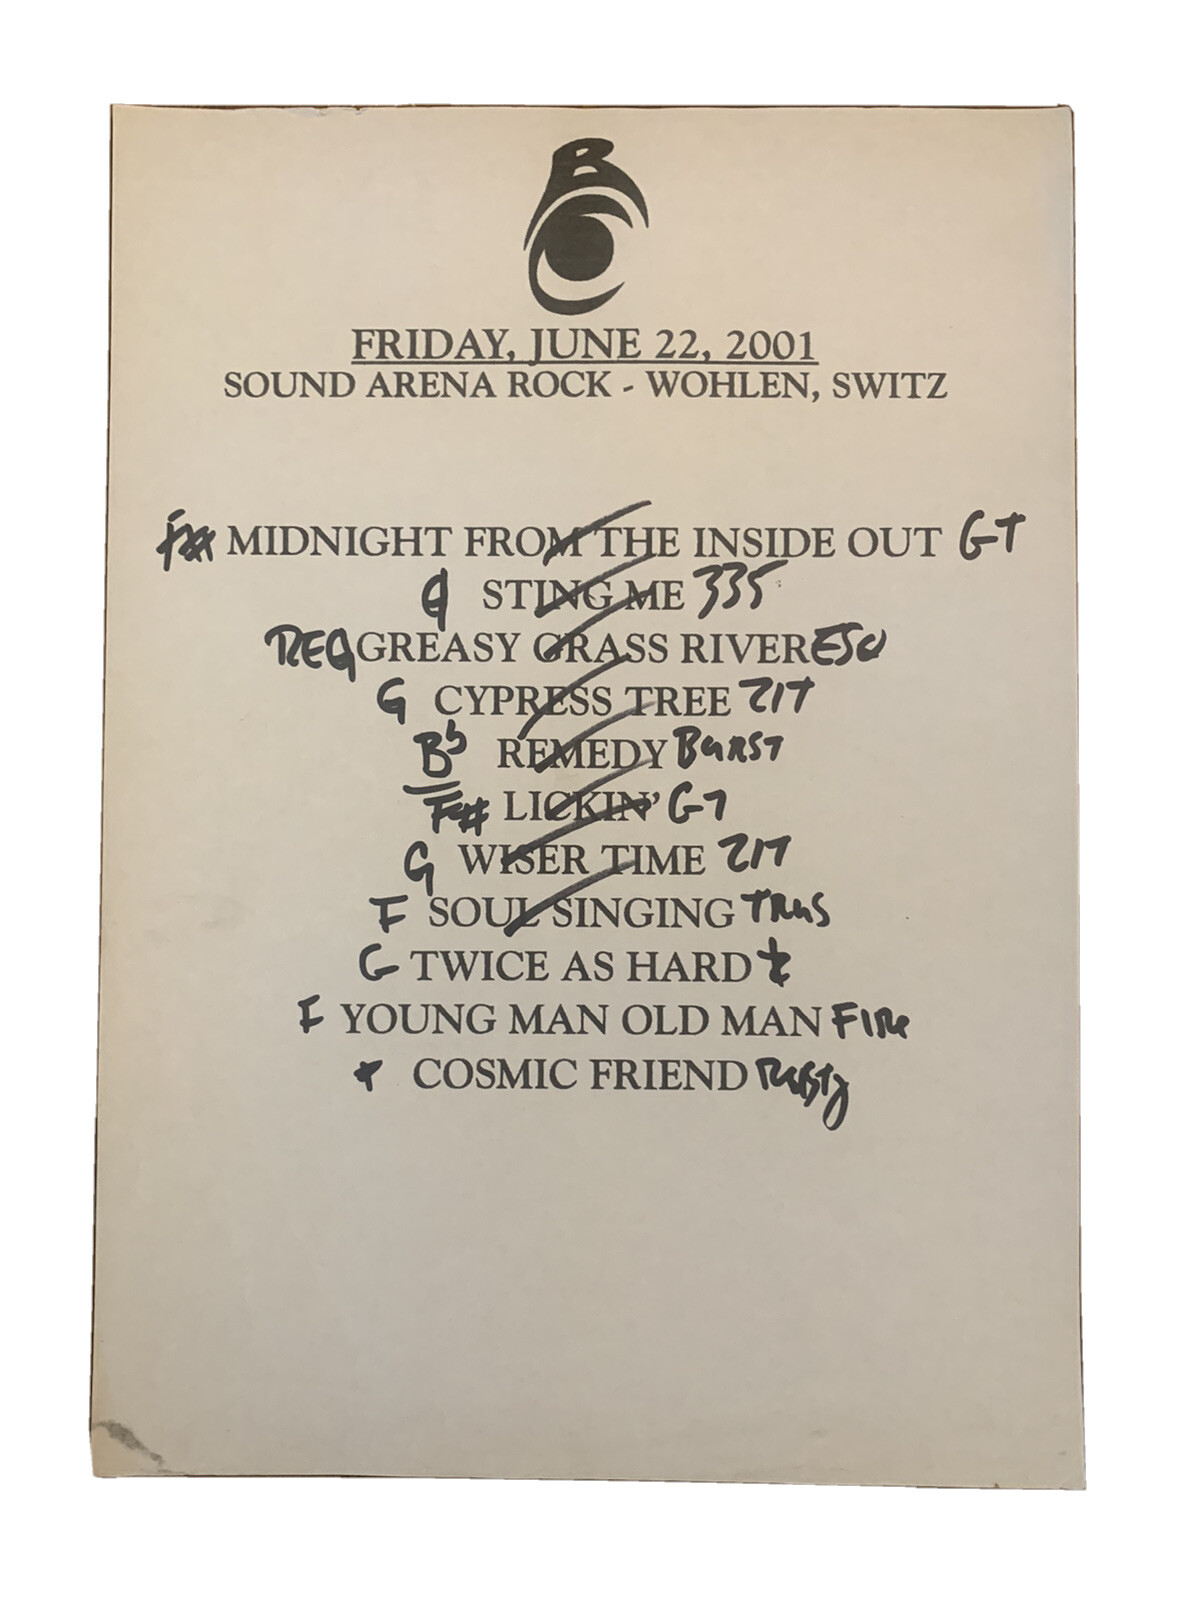 B
FRIDAY, JUNE 22, 2001
SOUND ARENA ROCK - WOHLEN, SWITZ
F# MIDNIGHT FROM THE INSIDE OUT GT
G STING ME 335
REG GREASY GRASS RIVER ESQ
G CYPRESS TREE ZIT
Bb REMEDY BURST
F# LICKIN' GT
G WISER TIME ZIT
F SOUL SINGING TRUS
G TWICE AS HARD
F YOUNG MAN OLD MAN FIRE
COSMIC FRIEND RUSTY